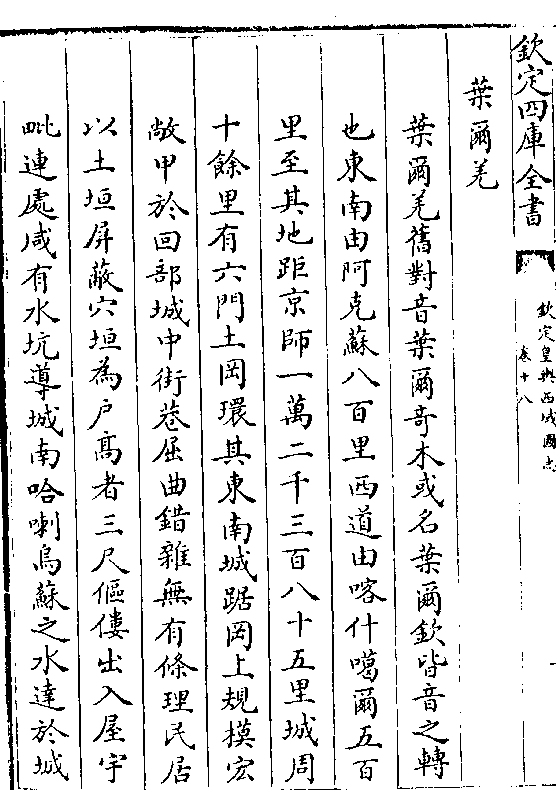 欽定四庫全書
欽定皇輿西域圖志
卷十八
葉爾羌
葉爾羌舊對音葉爾奇木或名葉爾欽皆音之轉
也東南由阿克蘇八百里西道由喀什噶爾五百
里至其地距京師一萬二千三百八十五里城周
十餘里有六門土岡環其東南城踞岡上規模宏
敞甲於回部城中街巷屈曲錯雜無有條理民居
以土垣屏蔽穴垣為户髙者三尺傴僂出入屋宇
毗連處咸有水坑導城南哈喇烏蘇之水達於城